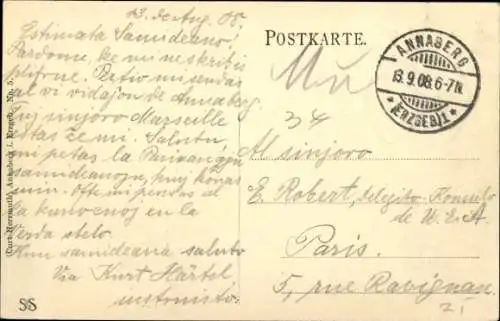 13. de Aug. 08.
Estimata Samideano!
Pardonu, ke mi ne skribis
plifrue. Refoje mi sendas
al vi vidaĵon de Annaberg.
Tuj sinjoro Marseille
estas ĉe mi. Salutu,
mi petas la Parizanajn
samideanojn, kiuj konas
min. Ofte mi pensas al
la kunvenoj en la
Verda stelo
Kun samideana saluto
Via Kurt Härtel
instruisto.
POSTKARTE.
ANNABERG
13.9.08.6-7N.
* (ERZGEB)1 *
34
Al sinjoro
E. Robert, delegito-Konsulo
de U.E.A.
Paris.
5, rue Ravignan
SS